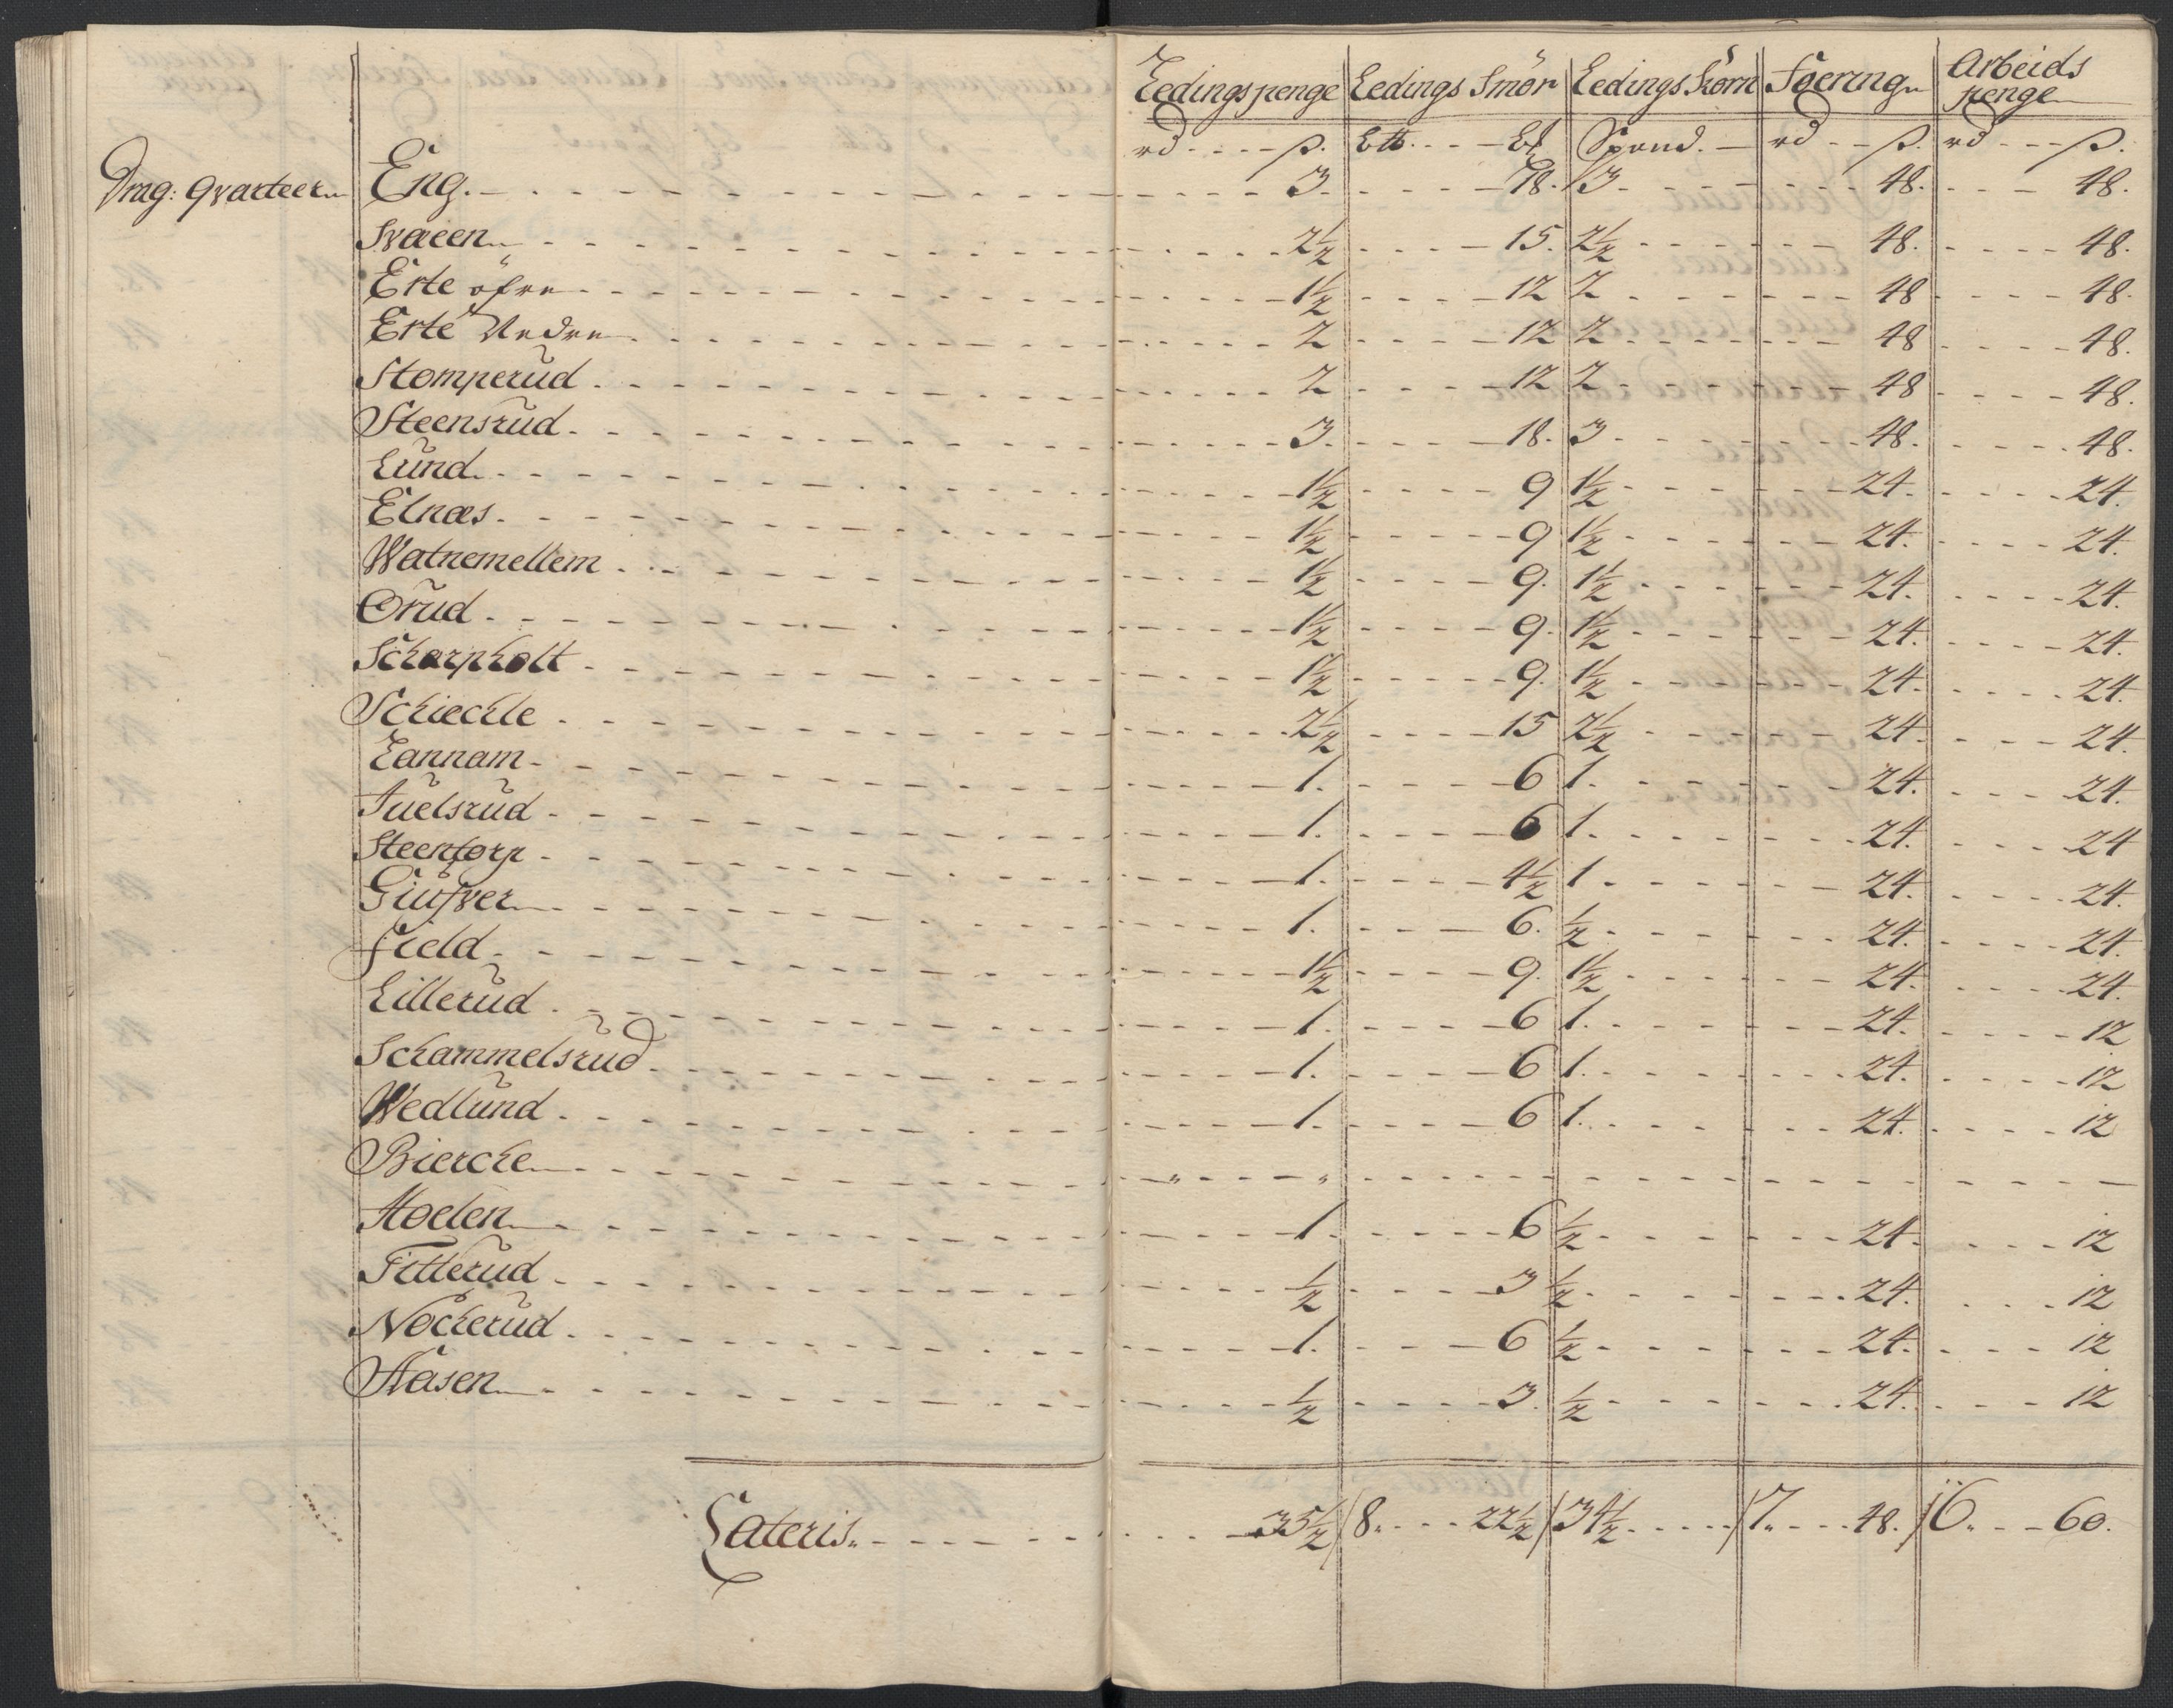 Leedingspenge Leedings Smör Leedings Korn Foering Arbeids penge
rd ß. Bll. Bl. Spand. rd ß. rd ß.
Drag: Qvarteer Eng. 3. 18. 3 48. 48.
Svaeen 2½ 15. 2½ 48. 48.
Erte öfre 1½ 12 2 48 48.
Erte Nedre 2 12 2 48 48.
Stomperud 2 12 2 48 48.
Steensrud 3. 18. 3 48. 48.
Lund 1½ 9 1½ 24. 24.
Elnæs 1½ 9 1½ 24. 24.
Watnemellem 1½ 9. 1½ 24. 24.
Orud 1½ 9. 1½ 24. 24.
Scharpholt 1½ 9. 1½ 24. 24.
Schiechle 2½ 15 2½ 24. 24.
Lannam 1. 6 1. 24. 24.
Juelsrud 1. 6 1. 24. 24
Steentorp 1. 4½ 1 24. 24.
Giulsver 1. 6. ½ 24. 24.
Field 1½ 9. 1½ 24. 24.
Lillerud 1. 6 1. 24. 12
Schammelsrud 1. 6 1. 24. 12
Wedlund 1. 6 1. 24. 12
Biercke
Moelen 1. 6 ½ 24. 12
Titterud ½ 3 ½ 24. 12
Nöckerud 1. 6 ½ 24. 12
Aasen ½ 3. ½ 24. 12
Lateris. 35½ 8. 22½ 34½ 7. 48. 6. 60.